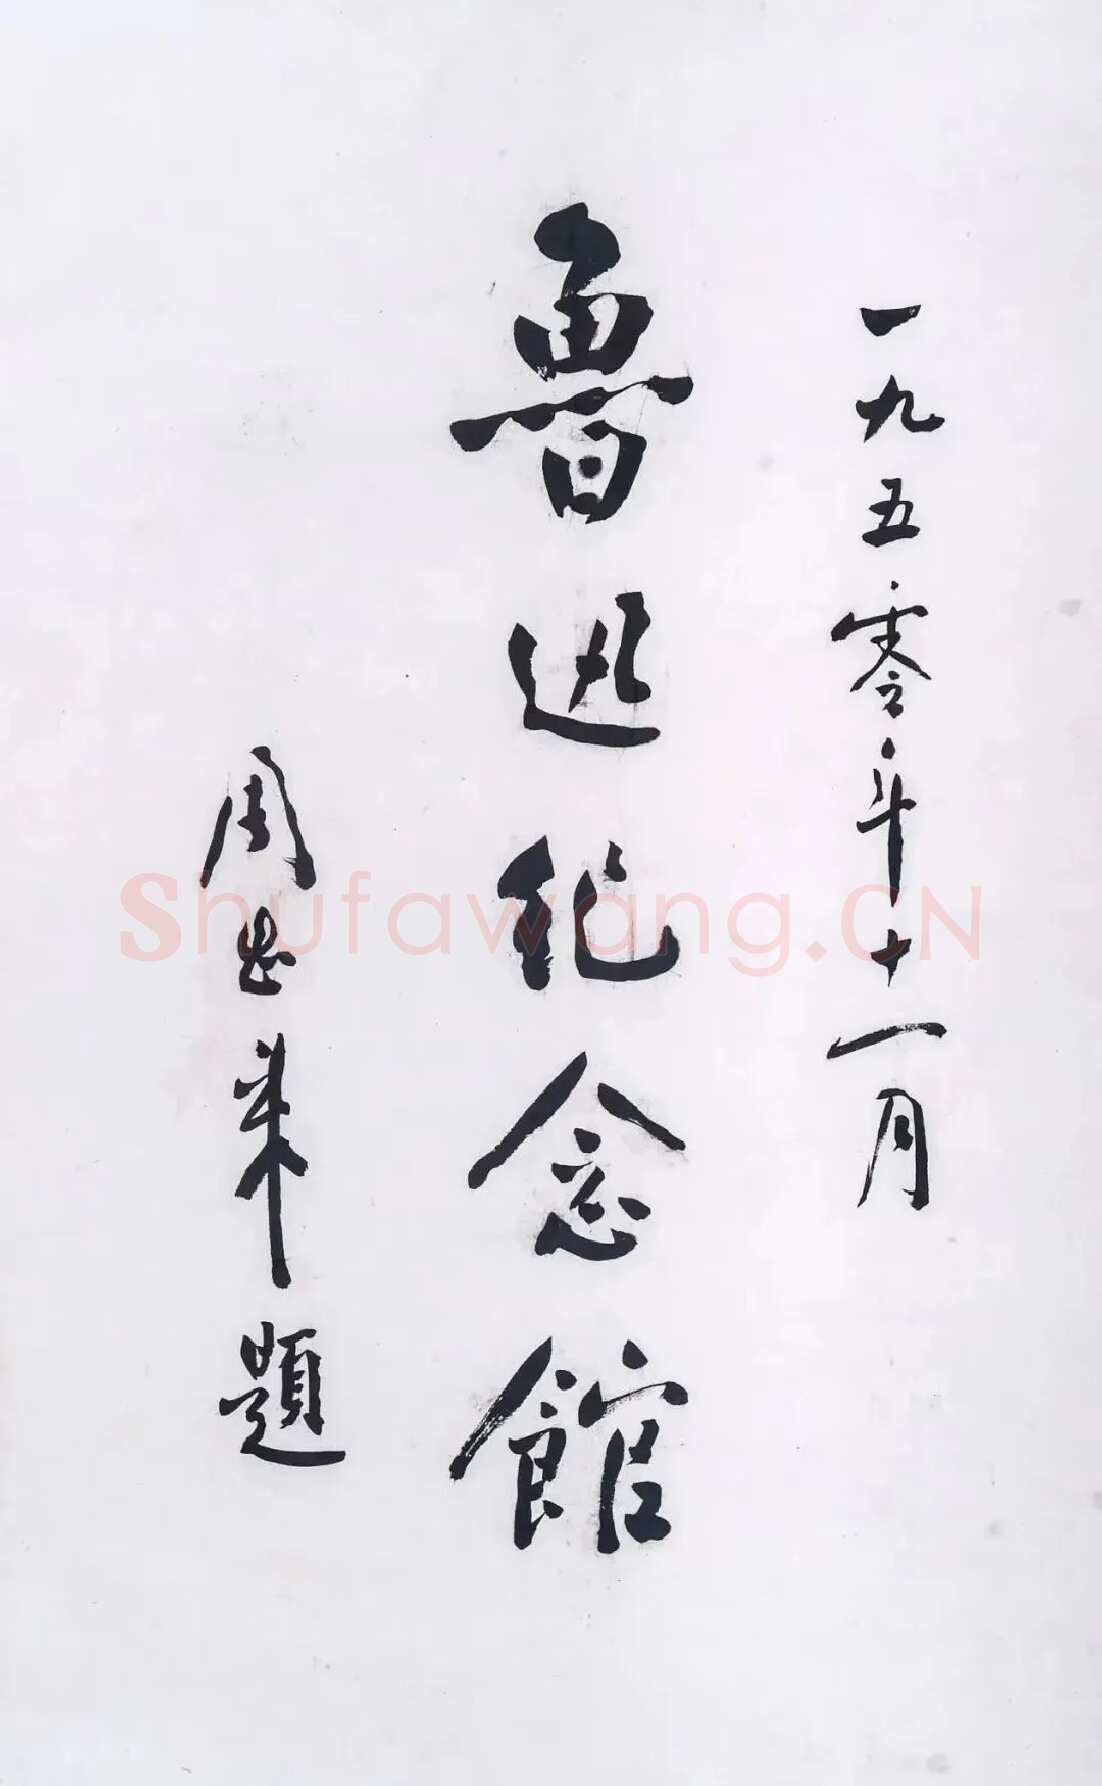 一九五零年十一月
魯迅紀念館
周恩来題
Shufawang.CN